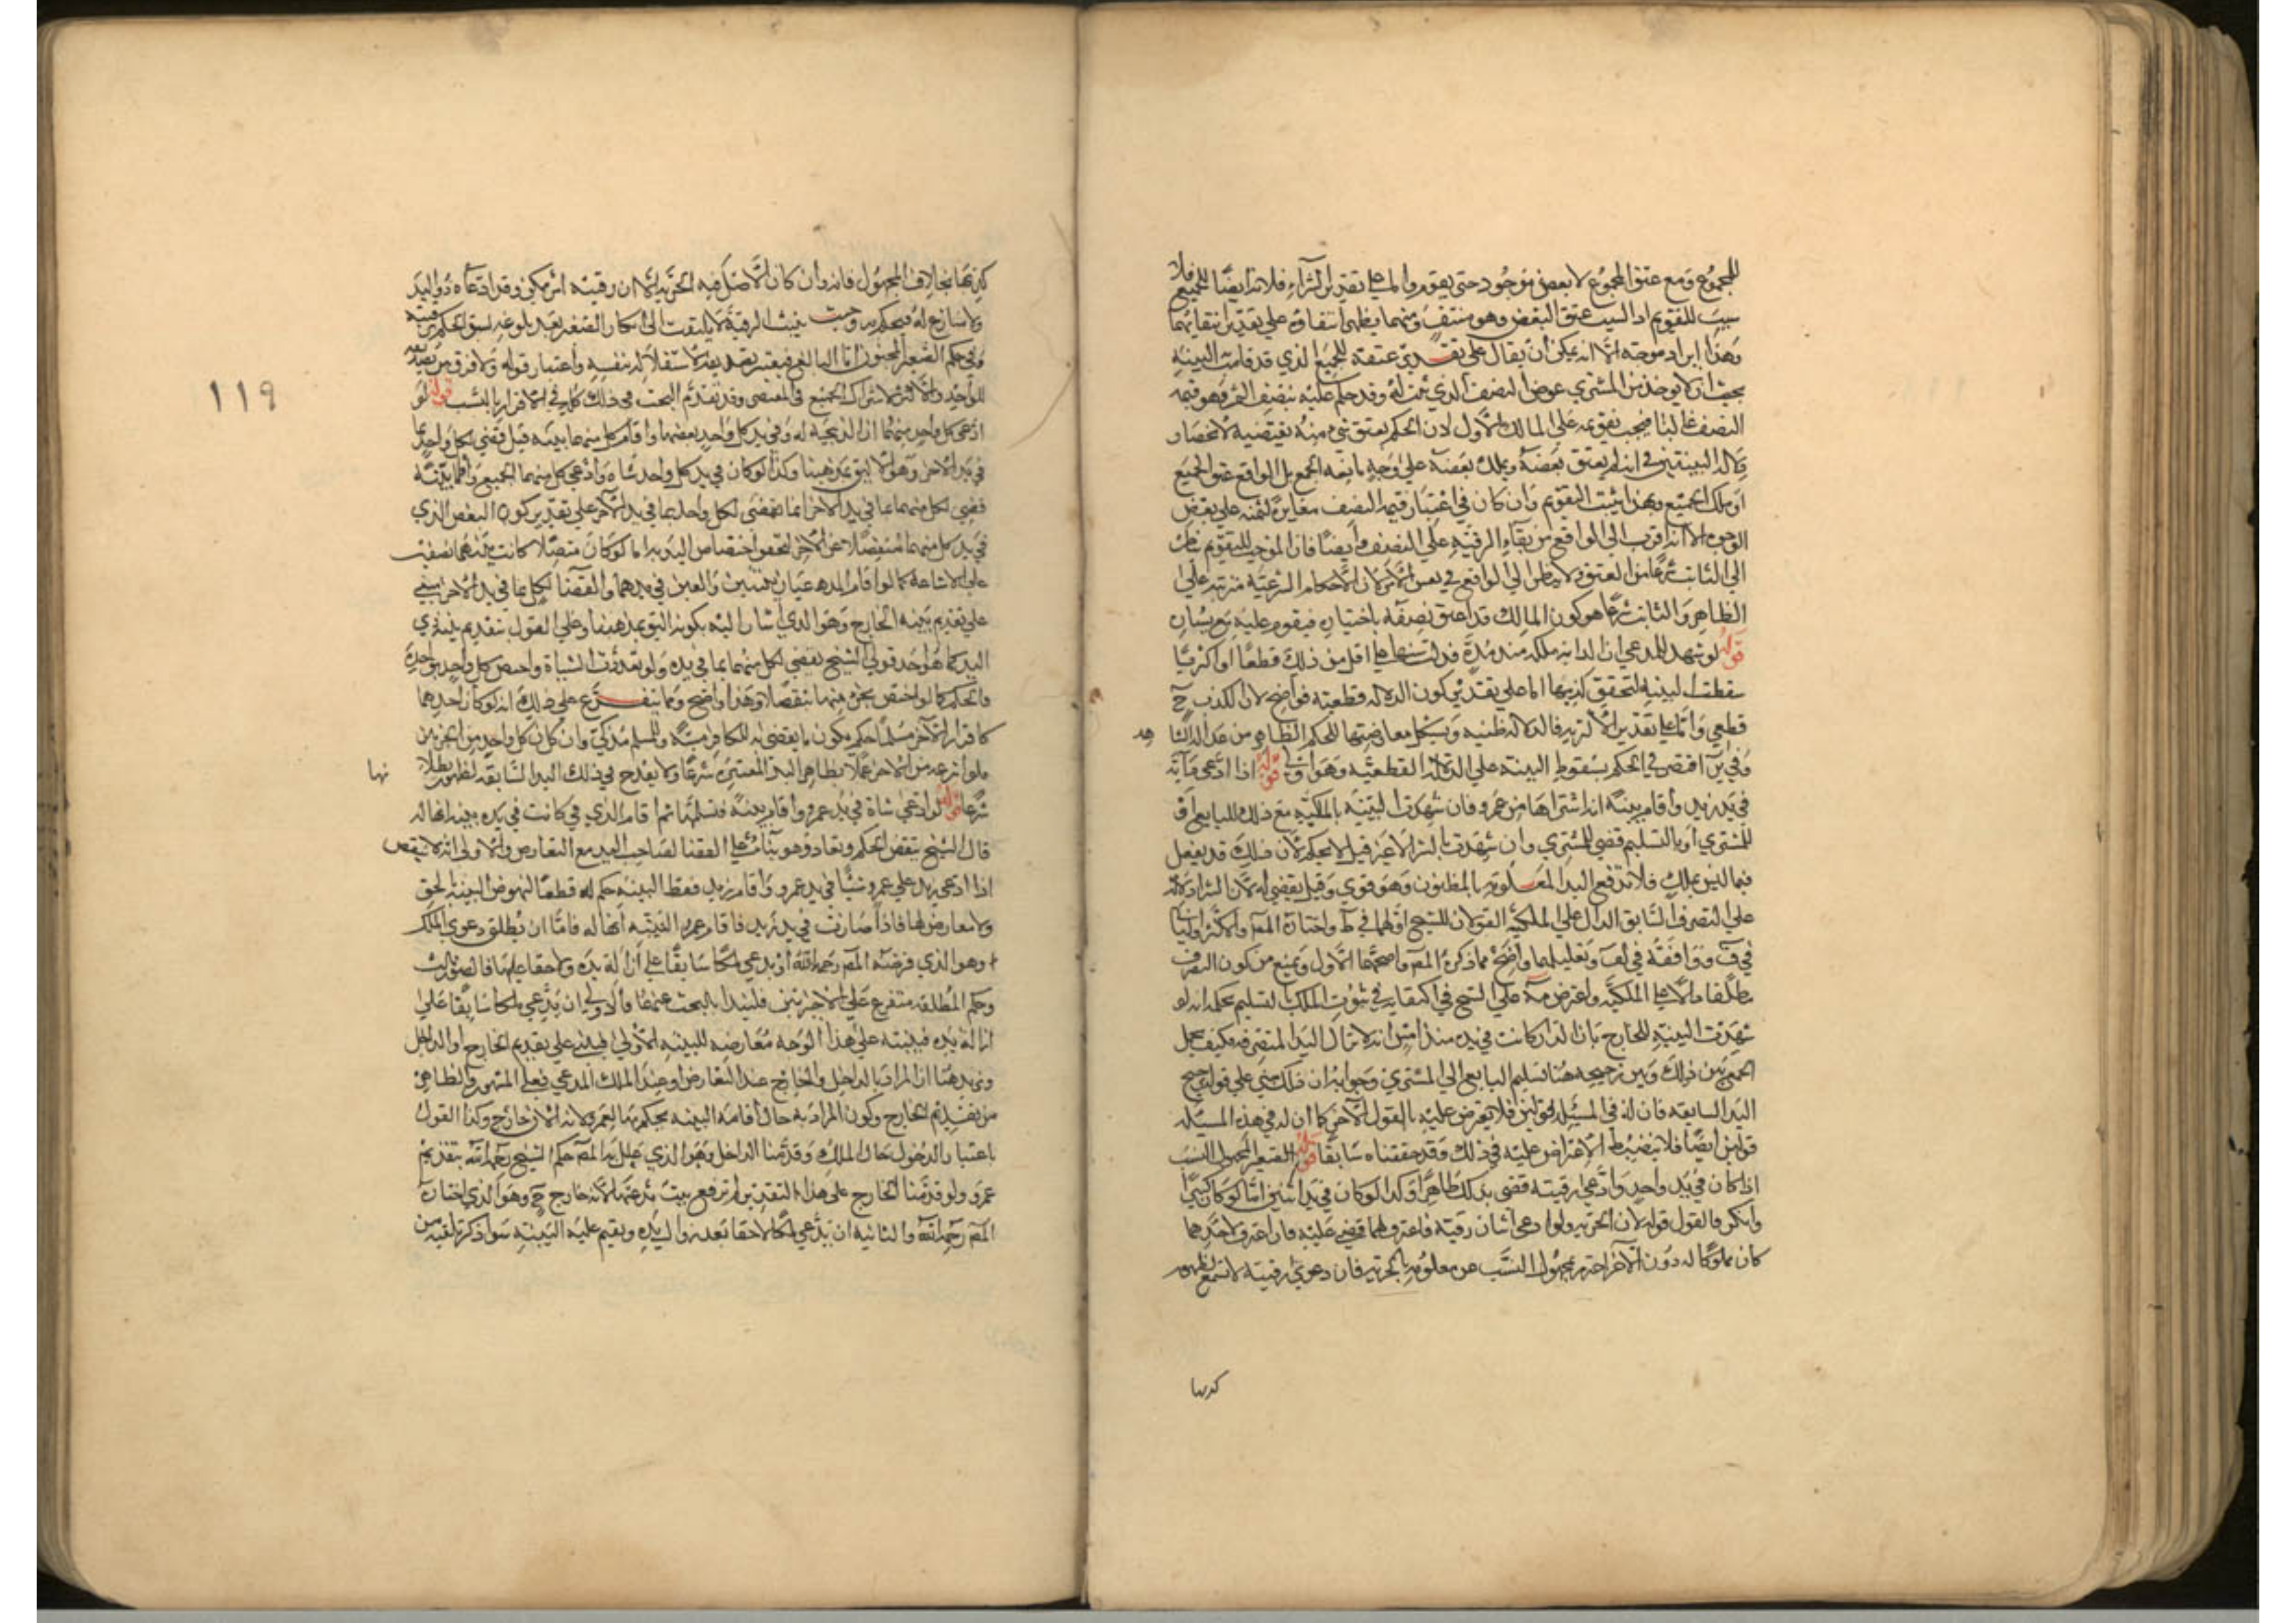 للمجموع ومع عتق المجموع لا بعض موجود حتى يقوم واما على تقدير الشراء فلانه ايضا للجميع فلا
سبب للتقويم اذ السبب عتق البعض وهو منتف ومنهما يظهر انتفاؤه على تقدير انتفائهما
وهذا ايراد موجه الا انه يمكن ان يقال على تقدير عتقه للجميع الذي قد قامت البينة
بحيث لا يوخذ من المشتري عوض النصف الذي ثبت له وقد حكم عليه بنصف الثمن وهو قيمة
النصف غالبا فيجب تقويمه على المالك الاول لان الحكم بعتق شيء منه يقتضيه لانحصار
دلالة البينتين في انه لم يعتق بعضه ويملك بعضه على وجه مانعة الجمع بل الواقع عتق الجميع
او ملك الجميع وبهذا يثبت التقويم وان كان في اعتبار قيمة النصف مغايرة لثمنه على بعض
الوجوه الا انه اقرب الى الواقع من بقاء الرقية على النصف وايضا فان الموجب للتقويم ناظر
الى الثابت شرعا من العتق ولا يناظر الى الواقع في نفس الامر لان الاحكام الشرعية مترتبة على
الظاهر والثابت شرعا هو كون المالك قد اعتق نصفه باختياره فيقوم عليه مع يساره
قوله لو شهد للمدعي ان الدابة ملكه منذ مدة فدلت سنها على اقل من ذلك قطعا او اكثريا
سقطت البينة لتحقق كذبها اما على تقدير كون الدلالة قطعية فواضح لان الكذب ح
قطعي واما على تقدير الاكثرية فالدلالة ظنية ويشكل معارضتها للحكم الظاهر من عدالة الشا
هد
وفي ير اقتصر في الحكم بسقوط البينة على الدلالة القطعية وهو اولى قوله اذا ادعى دابة
في يد زيد واقام بينة انه اشتراها من عمرو فان شهدت البينة بالملكية مع ذلك للبايع او
للمشتري او بالتسليم قضي للمشتري وان شهدت بالشراء لا غير قيل لا يحكم لان ذلك قد يفعل
فيما ليس بملك فلا تدفع اليد المعلومة بالمظنون وهو قوي وقيل يقضي له لان الشراء دلالة
على التصرف السابق الدال على الملكية القولان للشيخ اولهما في ط واختاره المص والاكثر وثانيا
في ف ووافقه في لف وتعليلهما واضح مما ذكره المص واصحهما الاول ويمنع من كون التصرف
مطلقا دالا على الملكية واعترض مه على الشيخ في اكتفائه في ثبوت الملك بالتسليم بحكمه انه لو
شهدت البينة للخارج بان الدار كانت في يده منذ امس انه لا تزال اليد المتصرفة فكيف يحصل
الجمع بين ذلك وبين ترجيحه هنا بتسليم البايع الى المشتري وجوابه ان ذلك مبني على قوله بترجيح
اليد السابقة فان له في المسئلة قولين فلا يعترض عليه بالقول الآخر كما ان له في هذه المسئلة
قولين ايضا فلا ينضبط الاعتراض عليه في ذلك وقد حققناه سابقا قوله الصغير المجهول النسب
اذا كان في يد واحد وادعى رقيته قضي بذلك ظاهرا وكذا لو كان في يد اثنين اما لو كان كبيرا
وانكر فالقول قوله لان الاصل الحرية ولو ادعى اثنان رقيته فاعترف لهما قضي عليه فان اعترف لاحدهما
كان مملوكا له دون الآخر احترز بمجهول النسب عن معلومه بالحرية فان دعوى رقيته لا تسمع لظهور
كذبها
كذبها بخلاف المجهول فانه وان كان الاصل فيه الحرية الا ان رقيته امر ممكن وقد ادعاه ذو اليد
ولا منازع له فيحكم به وحيث يثبت الرقية لا يلتفت الى انكار الصغير بعد بلوغه لسبق الحكم برقيته
وفي حكم الصغير المجنون اما البالغ فيعتبر تصديقه لاستقلاله بنفسه واعتبار قوله ولا فرق بين تصديقه
للواحد والاكثر لاشتراك الجميع في المقتضى وقد تقدم البحث في ذلك كله في الاقرار بالنسب قوله لو
ادعى كل واحد منهما ان الذبيحة له وفي يد كل واحد بعضها واقام كل منهما بينة قيل قضي لكل واحد بما
في يد الآخر وهو الاليق بمذهبنا وكذا لو كان في يد كل واحد شاة وادعى كل منهما الجميع واقاما بينة
قضي لكل منهما بما في يد الآخر انما يقضى لكل واحد بما في يد الآخر على تقدير كون البعض الذي
في يد كل منهما منفصلا عن الآخر لتحقق اختصاص اليد به اما لو كان متصلا كانت بينهما نصفين
على الاشاعة كما لو اقام المدعيان بينتين والعين في يدهما والقضا لكل بما في يد الآخر مبني
على تقديم بينة الخارج وهو الذي اشار اليه بكونه اليق بمذهبنا وعلى القول بتقديم بينة ذي
اليد كما هو احد قولي الشيخ يقضي لكل منهما بما في يده ولو تعددت الشياة واختص كل واحد بواحدة
فالحكم كما لو اختص بجزء منهما منفصلا وهذا واضح ومما يتفرع على ذلك انه لو كان احدهما
كافرا والآخر مسلما حكم بكون ما يقضى به للكافر ميتة وللمسلم مذكى وان كان كل واحد من الجزئين
نها
ملوا نزعه من الآخر عملا بظاهر اليد المعتبرة شرعا ولا يقدح في ذلك اليد السابقة لظهور بطلا
شرعا قوله لو ادعى شاة في يد عمرو واقام بينة فتسلمها ثم اقام الذي كانت في يده بينة انها له
قال الشيخ ينقض الحكم وتعاد وهو بناء على القضا لصاحب اليد مع التعارض والاولى انه لا ينقض
اذا ادعى زيد على عمرو شيئا في يد عمرو واقام زيد فقط البينة حكم له قطعا لنهوض البينة بالحق
ولا معارض لها فاذا صارت في يد زيد فاقام عمرو البينة انها له فاما ان يطلق دعوى الملك
وهو الذي فرضه المص رحمه الله او يدعي ملكا سابقا على ازالة يده ولاحقا عليها فالصور ثلث
وحكم المطلقة متفرع على الاخيرتين فلنبدأ بالبحث عنهما والاولى ان يدعي ملكا سابقا على
ازالة يده فبينته على هذا الوجه معارضة للبينة الاولى فيبنى على تقديم الخارج او الداخل
ونريد هنا ان المراد بالداخل والخارج عند التعارض او عند الملك المدعى فعلى المشهور والظاهر
من تقديم الخارج وكون المراد به حال اقامة البينة يحكم بها لعمرو لانه الان خارج وكذا القول
باعتبار الدخول حال الملك وقدمنا الداخل وهو الذي علل به المص حكم الشيخ رحمه الله بتقديم
عمرو ولو قدمنا الخارج على هذا التقدير لم ترفع بينة مدعيها لانه خارج ح وهو الذي اختاره
المص رحمه الله والثانية ان يدعي ملكا لاحقا بعد زوال يده ويقيم عليه البينة سواء ذكر تلقيه من
١١٩